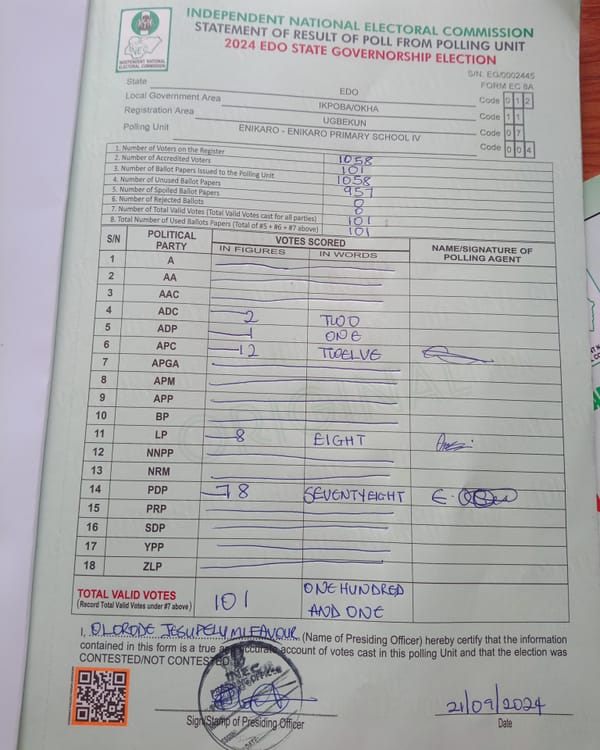 INDEPENDENT NATIONAL ELECTORAL COMMISSION
STATEMENT OF RESULT OF POLL FROM POLLING UNIT
2024 EDO STATE GOVERNORSHIP ELECTION
INEC
INDEPENDENT NATIONAL
ELECTORAL COMMISSION
S/N: EG/0002445
FORM EC 8A
State EDO Code 0 1 2
Local Government Area IKPOBA/OKHA Code 1 1
Registration Area UGBEKUN Code 0 7
Polling Unit ENIKARO - ENIKARO PRIMARY SCHOOL IV Code 0 0 4
1. Number of Voters on the Register 1058
2. Number of Accredited Voters 101
3. Number of Ballot Papers Issued to the Polling Unit 1058
4. Number of Unused Ballot Papers 957
5. Number of Spoiled Ballot Papers 0
6. Number of Rejected Ballots 0
7. Number of Total Valid Votes (Total Valid Votes cast for all parties) 101
8. Total Number of Used Ballots Papers (Total of #5 + #6 + #7 above) 101
S/N POLITICAL PARTY VOTES SCORED NAME/SIGNATURE OF POLLING AGENT
IN FIGURES IN WORDS
1 A
2 AA
3 AAC
4 ADC 2 TWO
5 ADP 1 ONE
6 APC 12 TWELVE
7 APGA
8 APM
9 APP
10 BP
11 LP 8 EIGHT
12 NNPP
13 NRM
14 PDP 78 SEVENTYEIGHT
15 PRP
16 SDP
17 YPP
18 ZLP
ORIGINAL
TOTAL VALID VOTES 101 ONE HUNDRED
(Record Total Valid Votes under #7 above) AND ONE
I, OLORODE (Name of Presiding Officer) hereby certify that the information
contained in this form is a true accurate account of votes cast in this polling Unit and that the election was
CONTESTED/NOT CONTESTED.
INEC
21/09/2024
Sign/Stamp of Presiding Officer Date